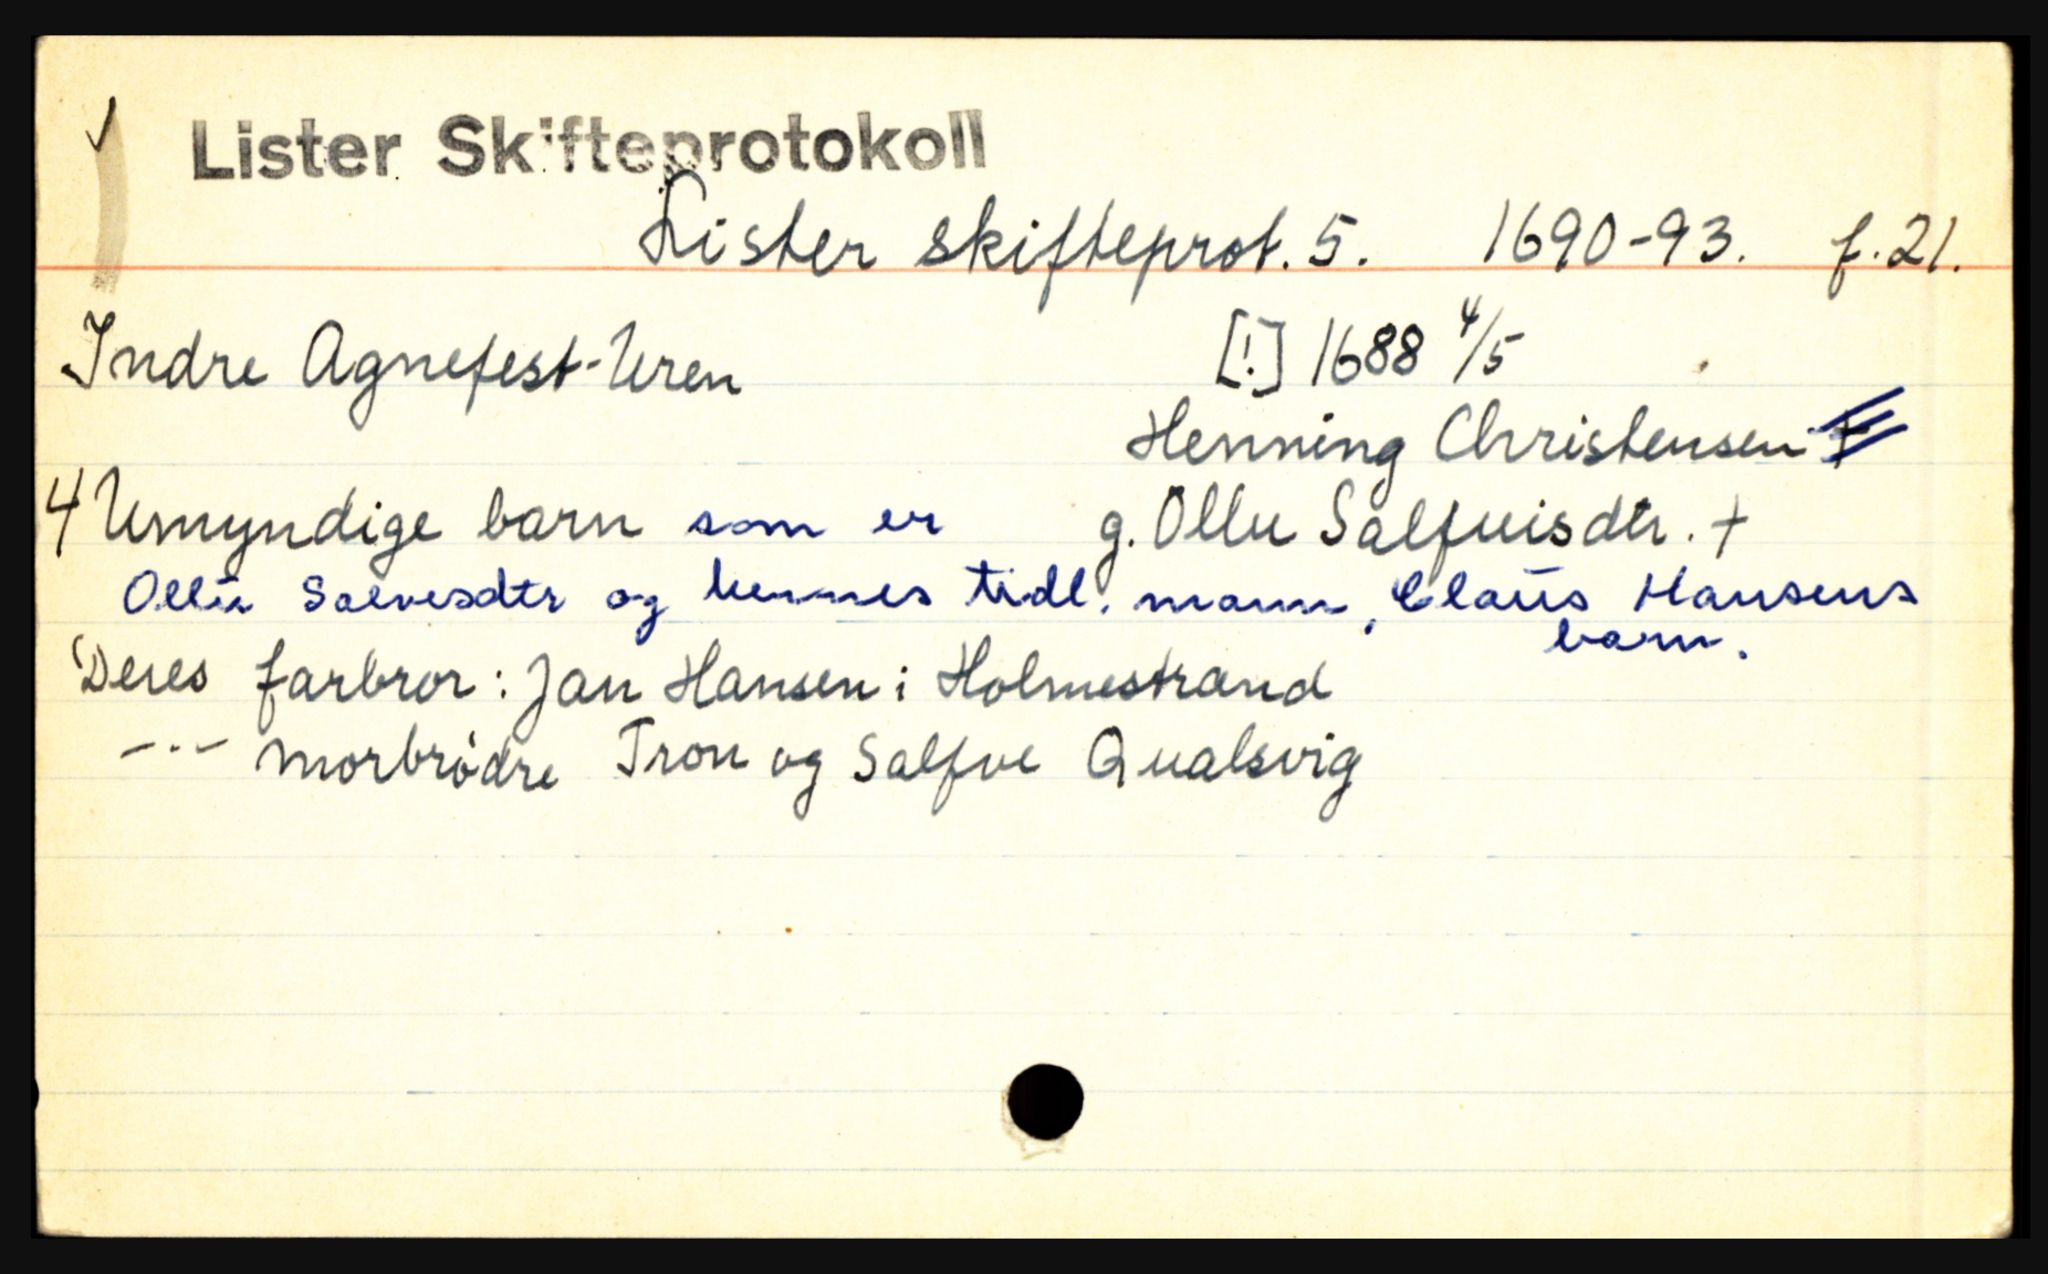 Lister Skifteprotokoll
Lister skifteprot. 5. 1690-93. f. 21.
Indre Agnefest-Uren [!] 1688 4/5
Henning Christensen
4 Umyndige barn som er g. Ollu Salfuisdtr. +
Ollu Salvesdtr og hennes tidl. mann, Claus Hansens
barn.
Deres farbror: Jan Hansen i Holmestrand
-"- morbrødre Tron og Salfve Qualsvig